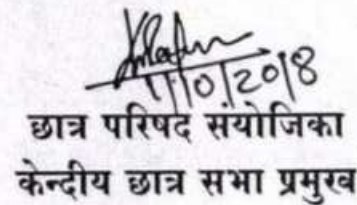 11/10/2018
छात्र परिषद संयोजिका
केन्दीय छात्र सभा प्रमुख